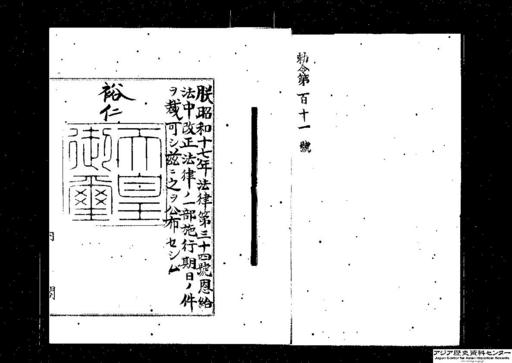 勅令第百十一號
朕昭和十七年法律第三十四號恩給
法中改正法律ノ一部施行期日ノ件
ヲ裁可シ茲ニ之ヲ公布セシム
裕仁
天皇御璽
内閣
アジア歴史資料センター
Japan Center for Asian Historical Records